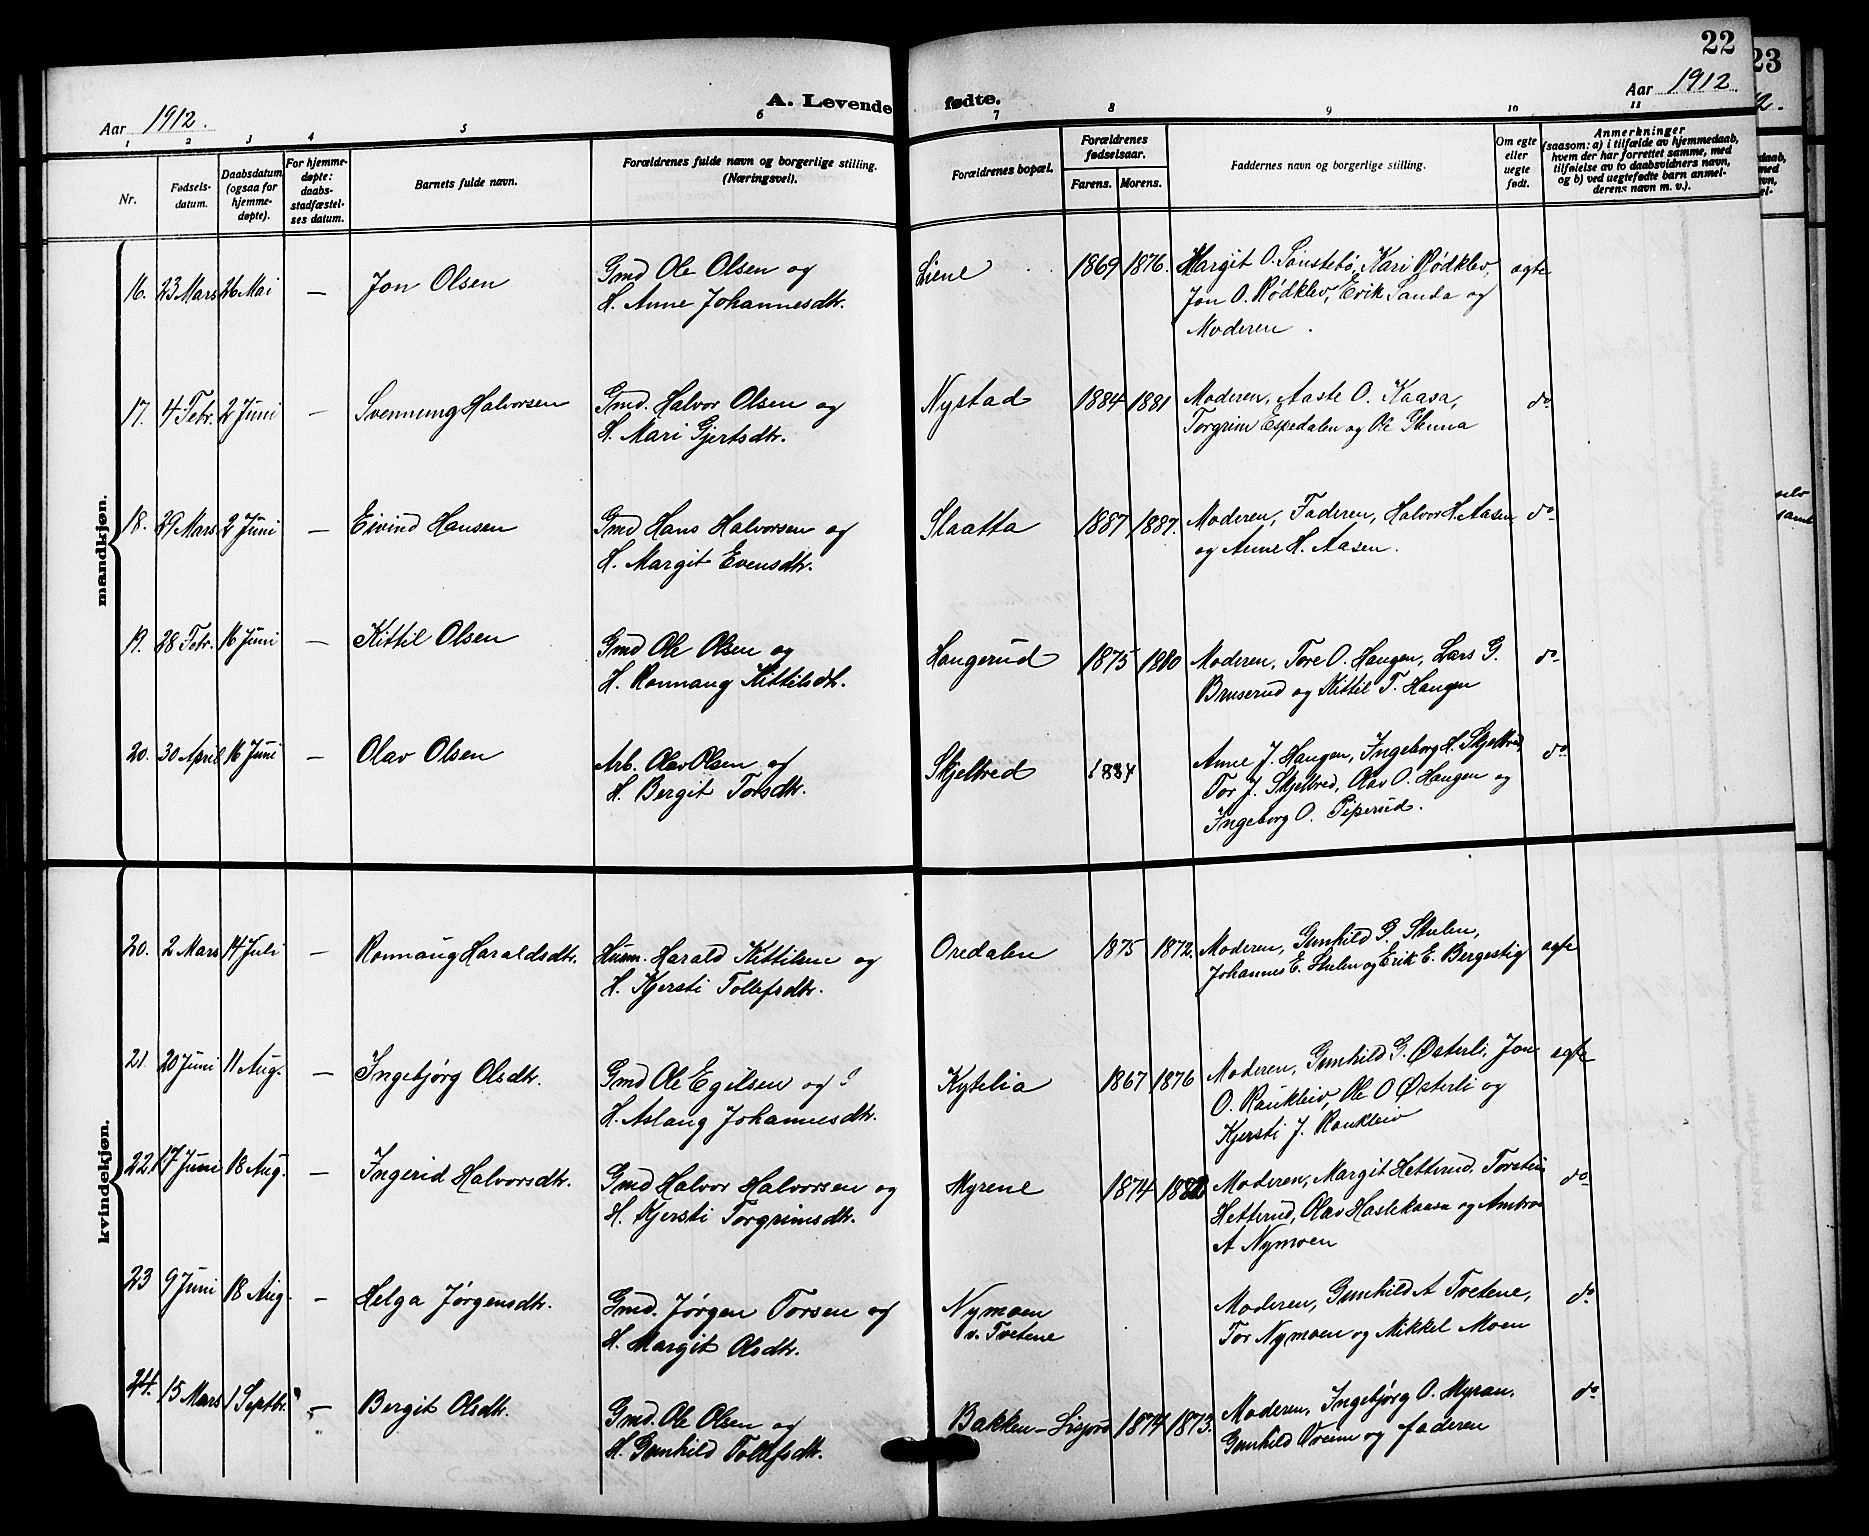 22
23
Aar 1912.
A. Levende fødte.
Aar 1912
1 2 3 4 5 6 7 8 9 10 11
Nr.
Fødsels-
datum.
Daabsdatum
(ogsaa for
hjemme-
døpte).
For hjemme-
døpte:
daabs-
stadfæstel-
ses datum.
Barnets fulde navn.
Forældrenes fulde navn og borgerlige stilling.
(Næringsvei).
Forældrenes bopæl.
Forældrenes
fødselsaar.
Farens. Morens.
Faddernes navn og borgerlige stilling.
Om egte
eller
uegte
født.
Anmerkninger
(saasom: a) i tilfælde av hjemmedaab,
hvem der har forrettet samme, med
tilføielse av to daabsvidners navn,
og b) ved uegtefødte barn anmel-
derens navn m. v.).
mandkjøn.
16. 23 Mars 26 Mai — Jon Olsen
Gmd Ole Olsen og
H. Anne Johannesdtr.
Liene 1869 1876.
Margit O. Sønstebø, Kari Rødklev,
Jon O. Rødklev, Erik Sanda og
Moderen.
egte
17. 4 Febr. 2 Juni — Svennung Halvorsen
Gmd. Halvor Olsen og
H. Mari Gjertsdtr.
Nystad 1884 1881
Moderen, Aaste O. Kaasa,
Torgrim Espedalen og Ole Glenna
do
18. 29 Mars 2 Juni — Eivind Hansen
Gmd Hans Halvorsen og
H. Margit Evensdtr.
Slaatta 1887 1887.
Moderen, Faderen, Halvor H. Aasen
og Anne H. Aasen.
do
19. 28 Febr. 16 Juni — Kittil Olsen
Gmd Ole Olsen og
H. Ronnaug Kittilsdtr.
Haugerud 1875 1880
Moderen, Tore O. Haugen, Lars G.
Bruserud og Kittil T. Haugen
do
20. 30 April 16 Juni — Olav Olsen
Arb. Olav Olsen og
H. Bergit Torsdtr.
Skjelbred 1884
Anne J. Haugen, Ingeborg H. Skjelbred,
Tor J. Skjelbred, Olav O. Haugen og
Ingeborg O. Piperud.
do
kvindekjøn.
20. 2 Mars 14 Juli — Ronnaug Haraldsdtr.
Husm. Harald Kittilsen og
H. Kjersti Tollefsdtr.
Oredalen 1875 1872.
Moderen, Gunhild G. Skulen,
Johannes E. Skulen og Erik E. Bergestig
egte
21 20 Juni 11 Aug. — Ingebjørg Olsdtr.
Gmd Ole Egilsen og
H. Aslaug Johannesdtr.
Kytelia 1867 1876
Moderen, Gunhild G. Østerli, Jon
O. Raukleiv, Ole O Østerli og
Kjersti J. Raukleiv
egte
22. 17 Juni 18 Aug. — Ingerid Halvorsdtr.
Gmd Halvor Halvorsen og
H. Kjersti Torgrimsdtr.
Myrene 1874
Moderen, Margit Hetterud, Torstein
Hetterud, Olav Haslekaasa og
A Nymoen
do
23 9 Juni 18 Aug. — Helga Jørgensdtr.
Gmd. Jørgen Torsen og
H. Margit Olsdtr.
Nymoen
v. Tvetene
Moderen, Gunhild A Tvetene,
Tor Nymoen og Mikkel Moen
do
24. 15 Mars 1 Septbr. — Bergit Olsdtr.
Gmd. Ole Olsen og
H. Gunhild Tollefsdtr.
Bakken - 1874 1873.
Moderen, Ingebjørg O. Myran,
Gunhild og faderen
do